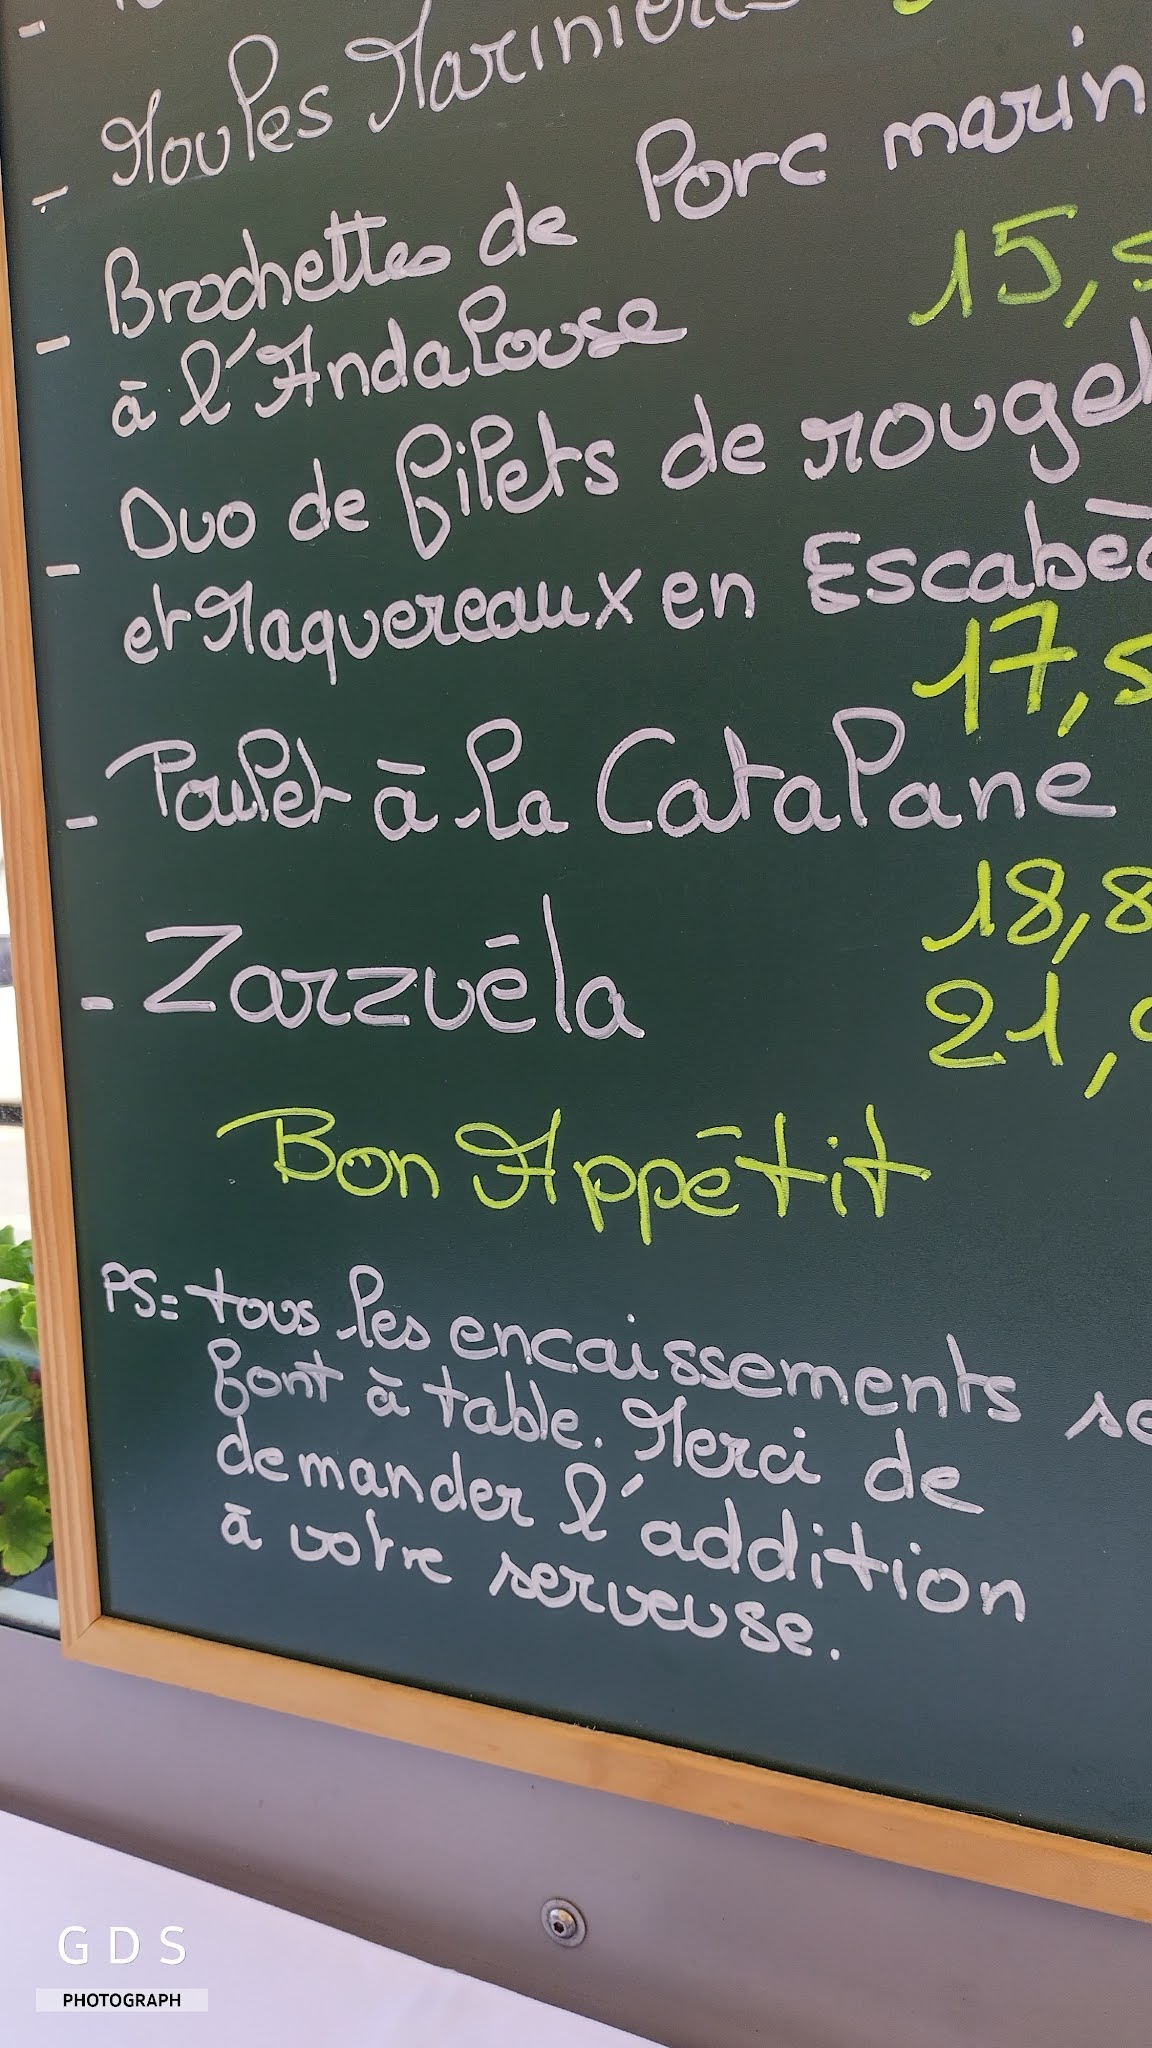 - Moules Marinières
- Brochettes de Porc marin
15,5
à l'Andalouse
- Duo de filets de rouget
et Maquereaux en Escabè
17,5
- Poulet à la Catalane
18,8
- Zarzuéla
21,
Bon Appétit
PS= tous les encaissements se
font à table. Merci de
demander l'addition
à votre serveuse.
GDS
PHOTOGRAPH